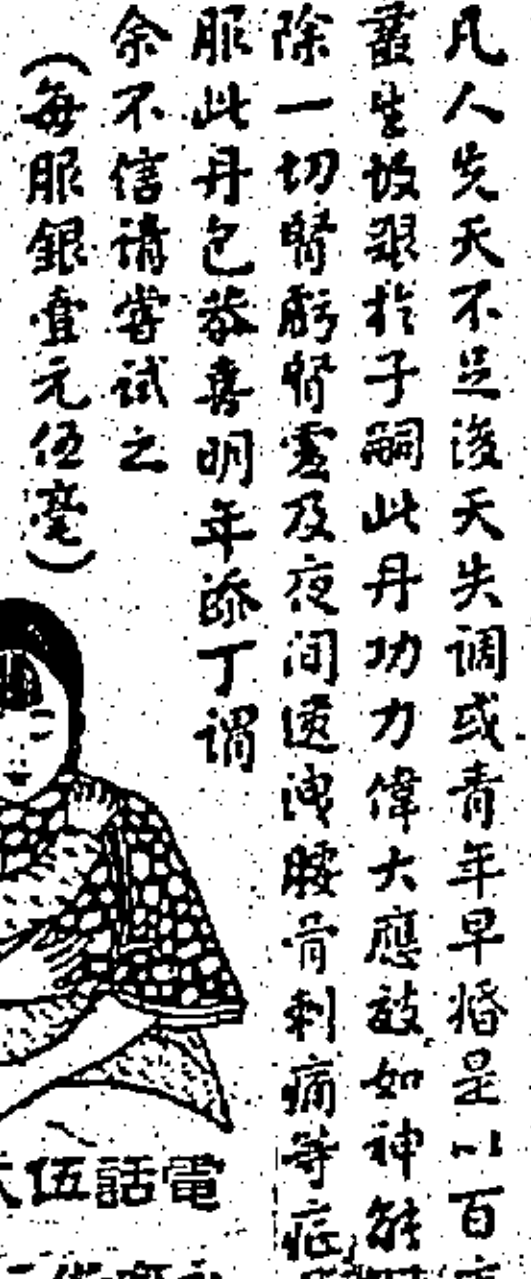 凡人先天不足後天失調或青年早婚是以百
叢生故艱於子嗣此丹功力偉大應效如神能
除一切腎虧腎寒及夜間遺洩腰骨刺痛等症
服此丹包恭喜明年添丁謂
余不信請嘗試之
(每服銀壹元伍毫)
電話伍